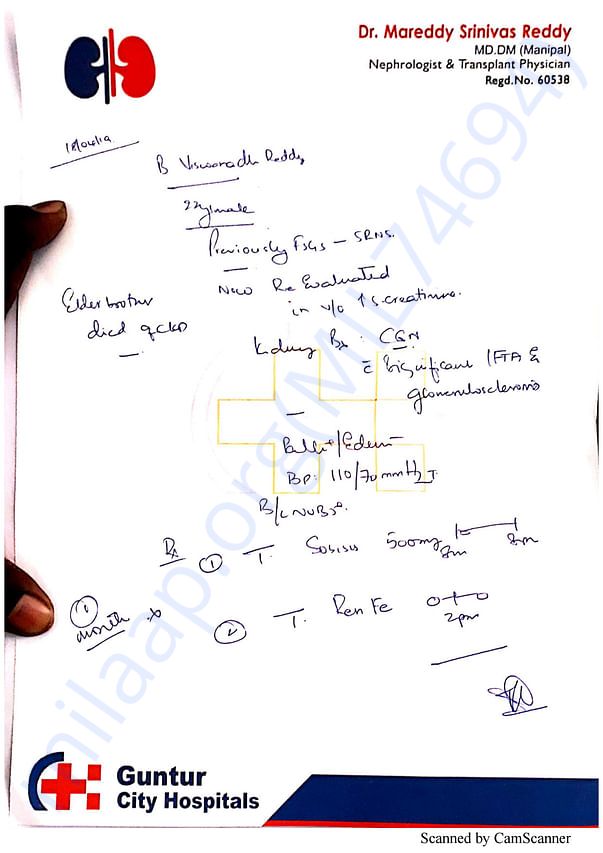 Dr. Mareddy Srinivas Reddy
MD.DM (Manipal)
Nephrologist & Transplant Physician
Regd.No. 60538
B Viswanadh Reddy
22y/male
Previously FSGS - SRNS.
Now Re Evaluated
in v/o ↑ S. creatinine.
Elder brother
died of CKD
Kidney Bx : CGN
c̄ Significant IFTA &
glomerulosclerosis
Pallor+/Edema-
BP: 110/70 mmHg
B/L NVBS+
Rx ① T. 500mg
8am 8pm
① month x
② T. RenFe 0-+-0
2pm
milaap.org(MIL746947)
Guntur
City Hospitals
Scanned by CamScanner